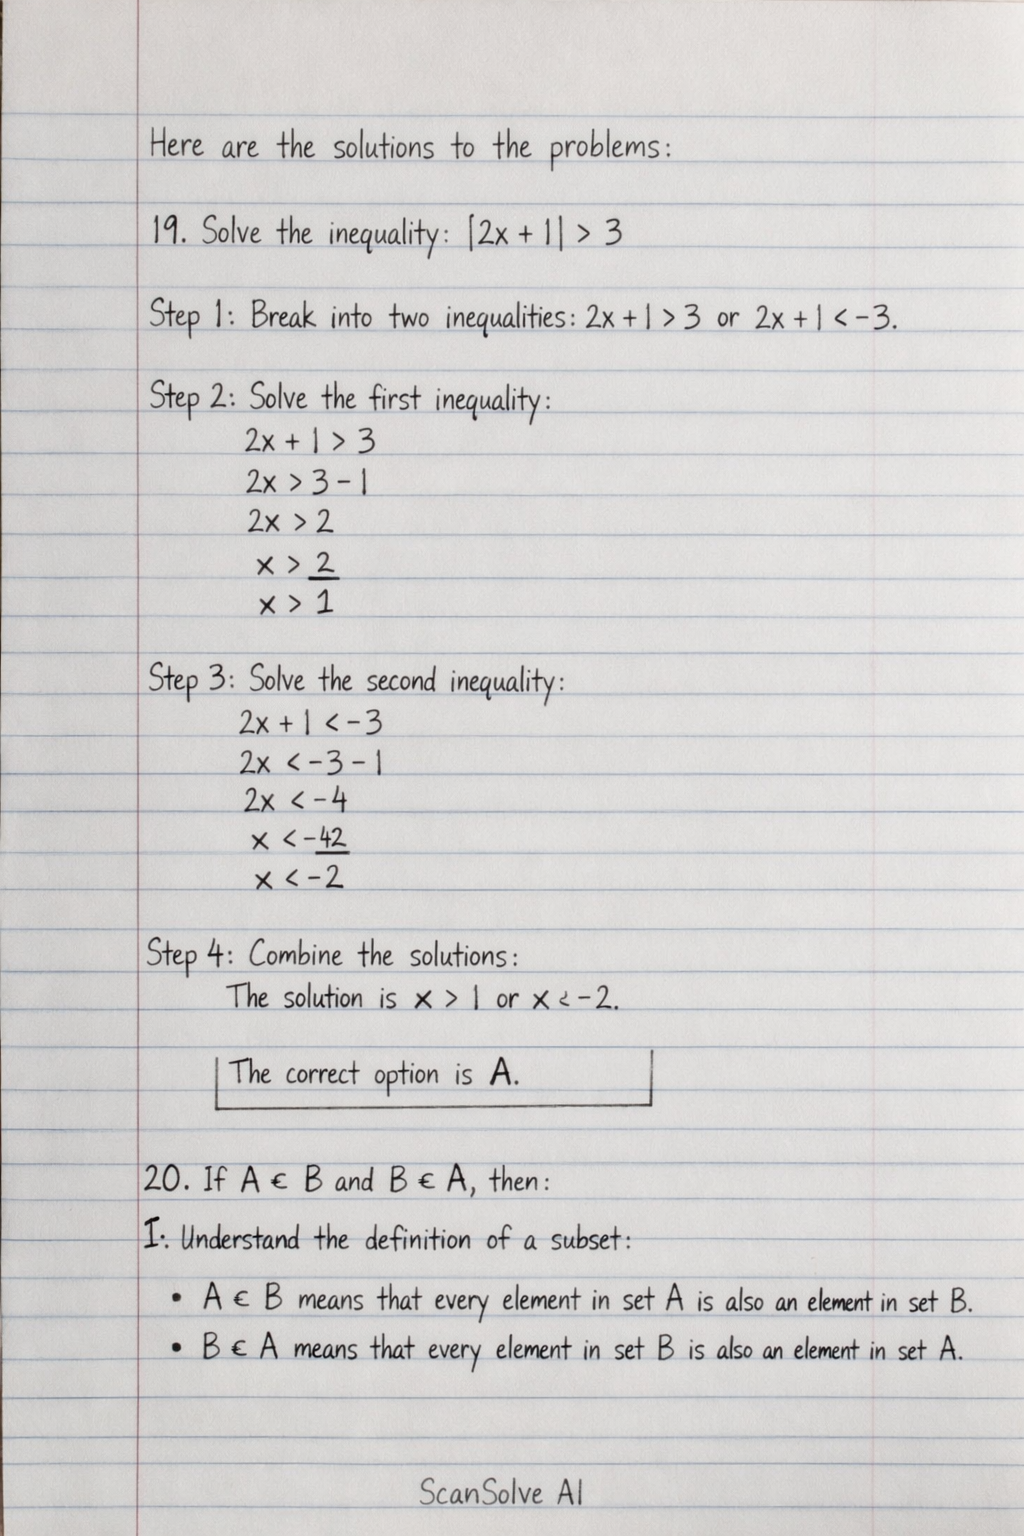 Here are the solutions to the problems:
19. Solve the inequality: |2x + 1| > 3
Step 1: Break into two inequalities: 2x + 1 > 3 or 2x + 1 < -3.
Step 2: Solve the first inequality:
2x + 1 > 3
2x > 3 - 1
2x > 2
x > 2
x > 1
Step 3: Solve the second inequality:
2x + 1 < -3
2x < -3 - 1
2x < -4
x < -42
x < -2
Step 4: Combine the solutions:
The solution is x > 1 or x < -2.
The correct option is A.
20. If A ∈ B and B ∈ A, then:
I. Understand the definition of a subset:
• A ∈ B means that every element in set A is also an element in set B.
• B ∈ A means that every element in set B is also an element in set A.
ScanSolve AI